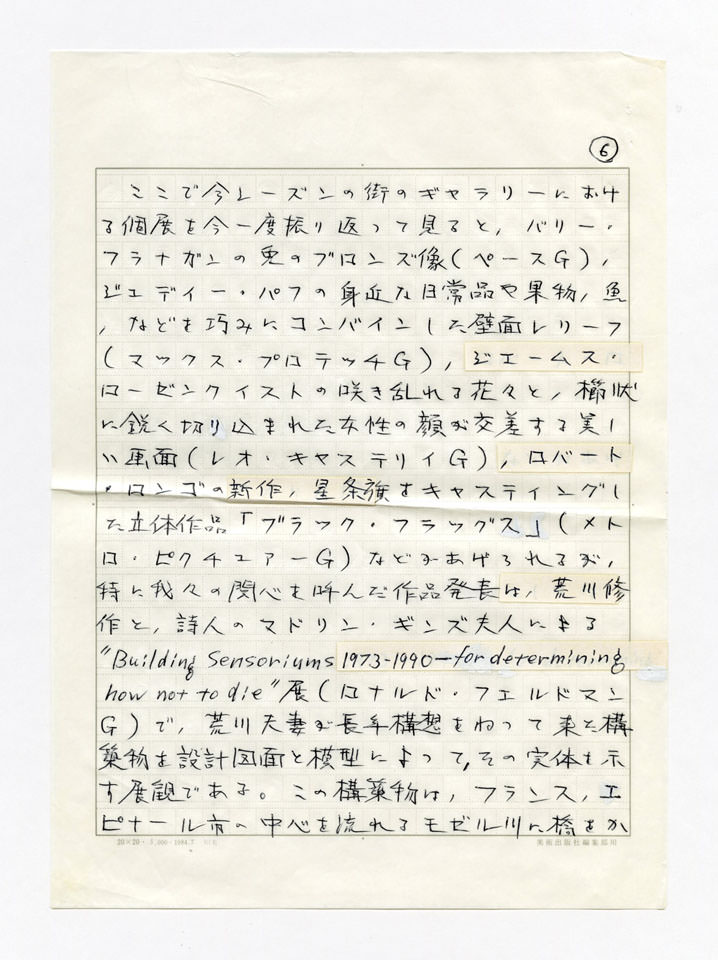 ⑥
ここで今シーズンの街のギャラリーにおけ
る個展を今一度振り返って見ると，バリー・
フラナガンの兎のブロンズ像(ペースG)，
ジュディー・パフの身近な日常品や果物，魚
，などを巧みにコンバインした壁面レリーフ
(マックス・プロテッチG)，ジェームス・
ローゼンクイストの咲き乱れる花々と，櫛状
に鋭く切り込まれた女性の顔が交差する美し
い画面(レオ・キャステリイG)，ロバート
・ロンゴの新作，星条旗をキャスティングし
た立体作品「ブラック・フラッグス」(メト
ロ・ピクチュアーG)などがあげられるが，
特に我々の関心を呼んだ作品発表は，荒川修
作と，詩人のマドリン・ギンズ夫人による
"Building Sensoriums 1973-1990—for determining
how not to die"展(ロナルド・フェルドマン
G)で，荒川夫妻が長年構想をねって来た構
築物を設計図面と模型によって，その実体を示
す展観である。この構築物は，フランス，エ
ピナール市の中心を流れるモゼル川に橋をか
20×20・5,000・1984.7
美術出版社編集部用